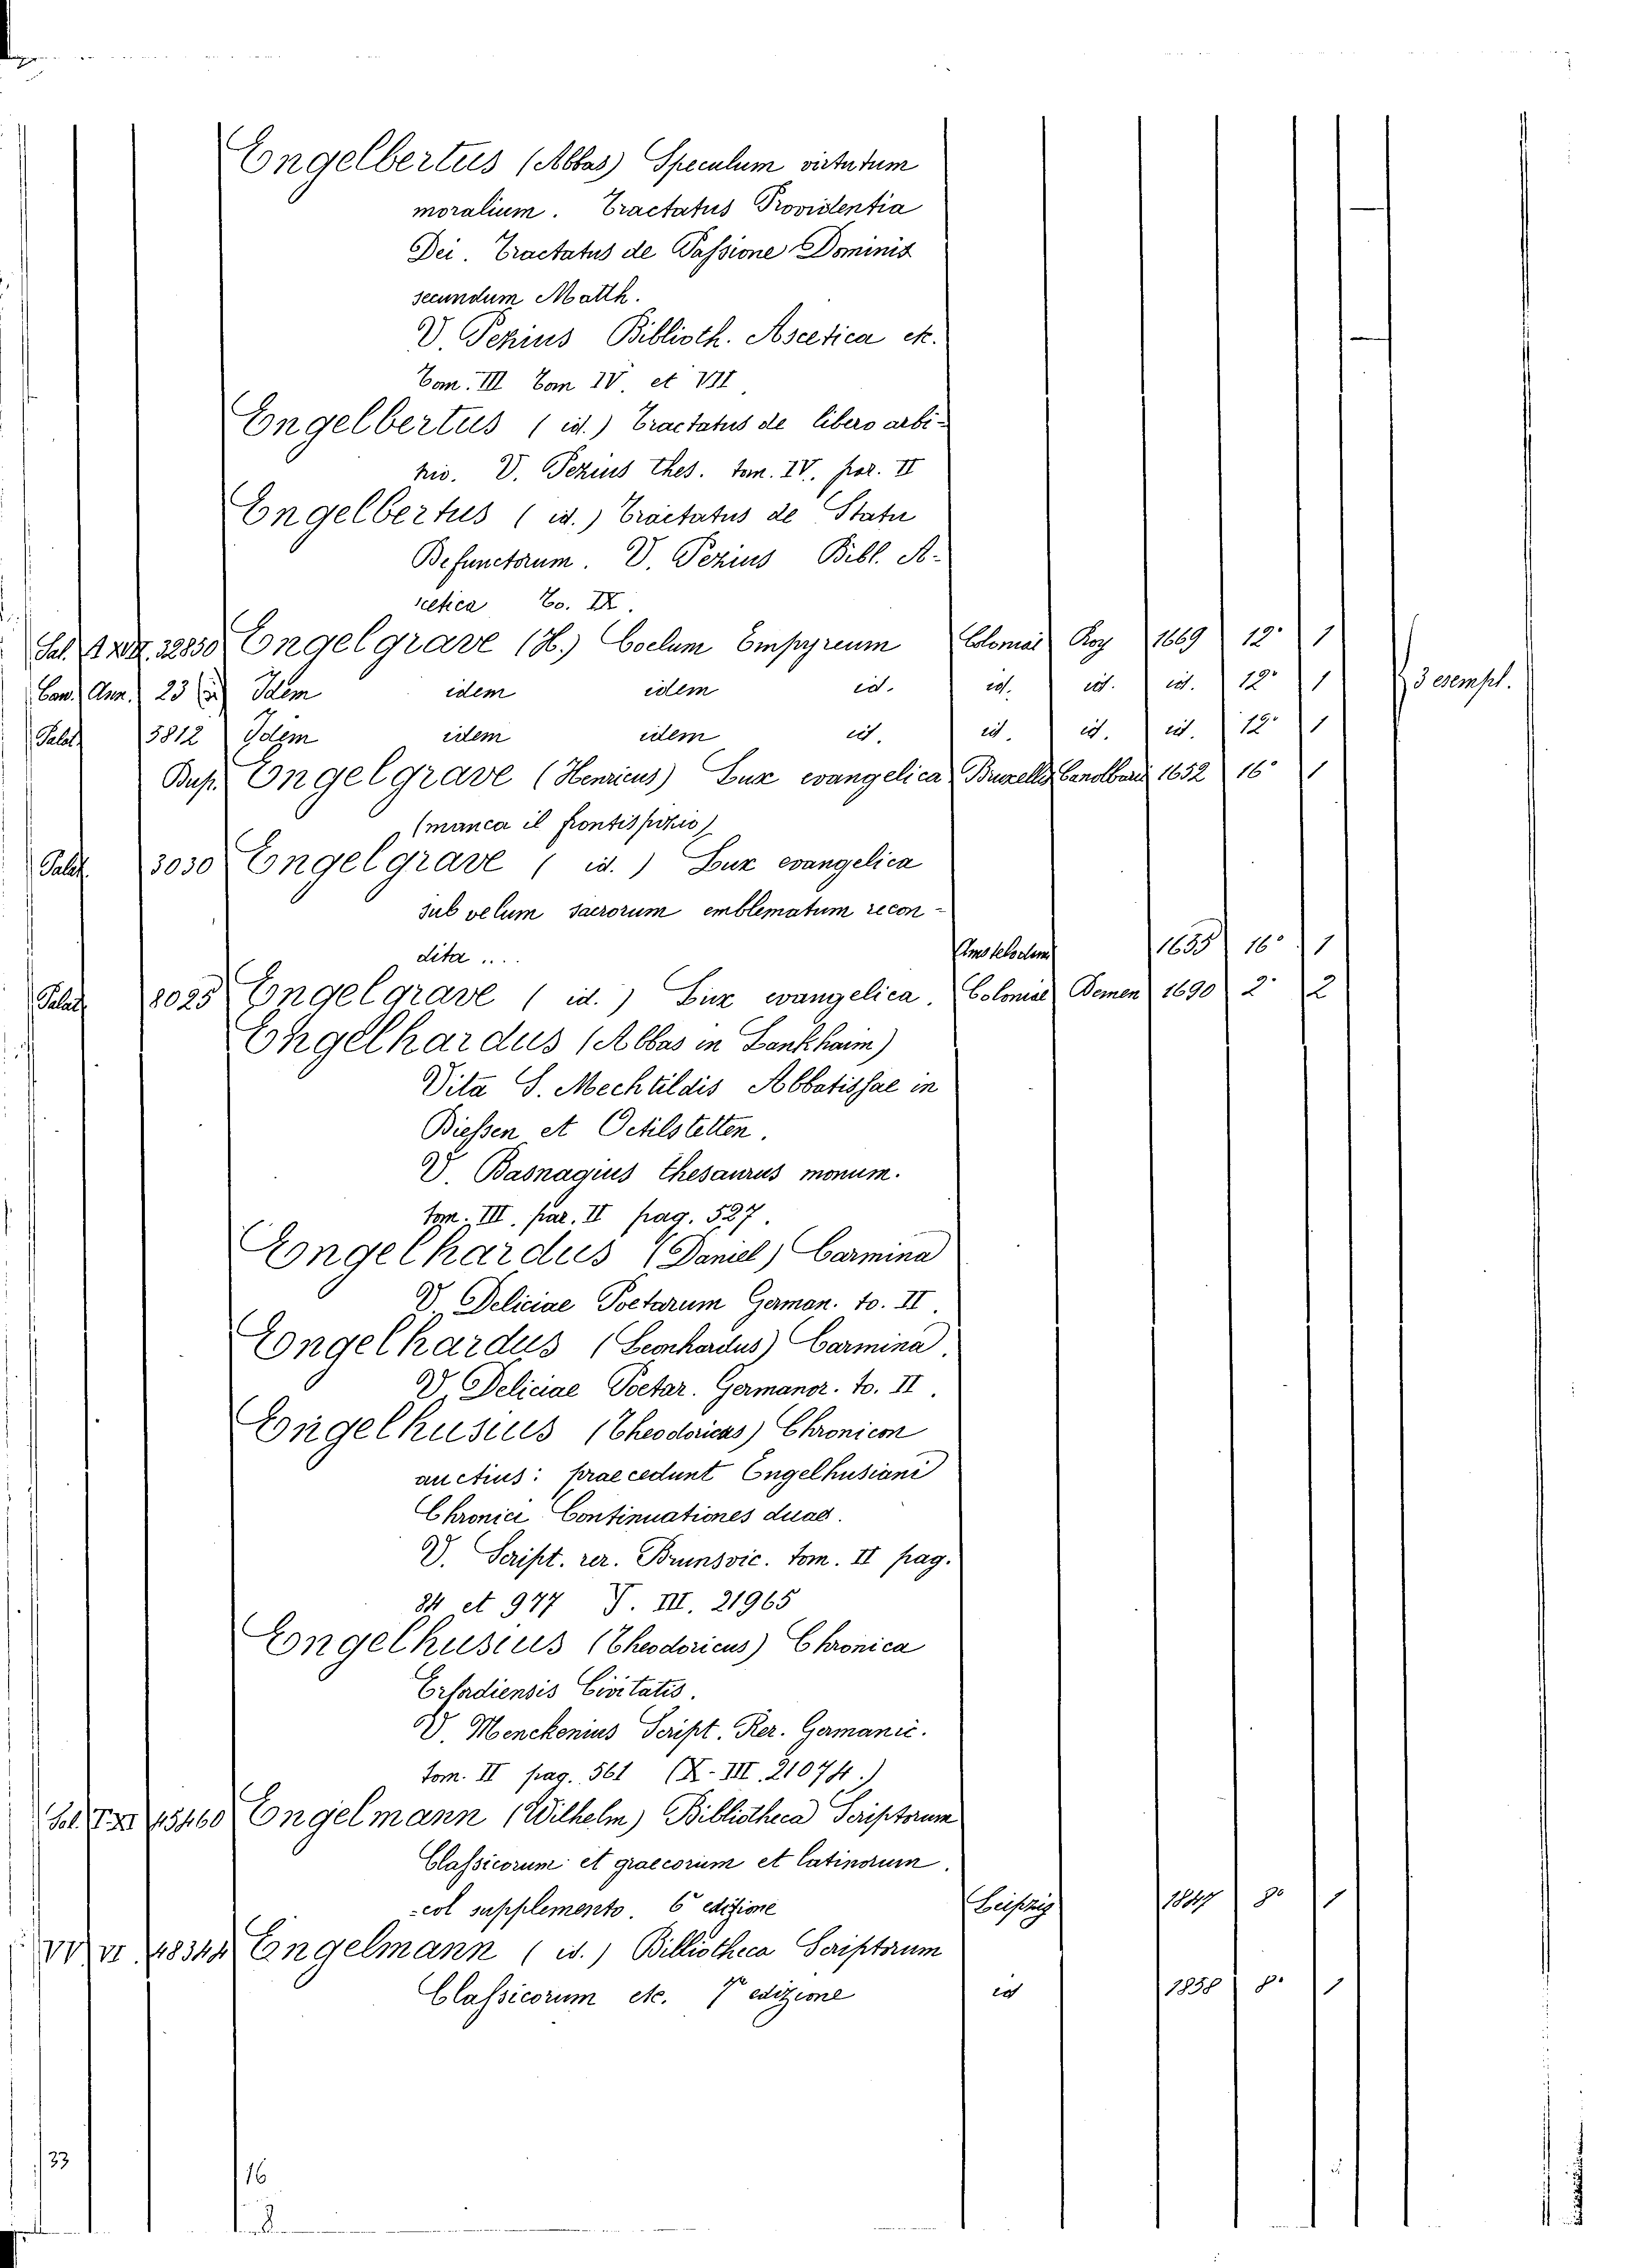 Engelbertus (Abbas) Speculum virtutum
moralium. Tractatus Providentia
Dei. Tractatus de Passione Dominis
secundum Matth.
V. Pezius Biblioth. Ascetica etc.
Tom. III Tom IV et VII
Engelbertus (id.) Tractatus de libero arbi-
trio. V. Pezius Thes. tom. IV. par. II
Engelbertus (id.) Tractatus de Statu
Defunctorum. V. Pezius Bibl. A-
scetica To. IX.
32850 Engelgrave (H.) Coelum Empyreum Coloniae Roy 1669 12° 1
Can. Ann. 23 Idem idem idem id. id. id. id. 12° 1 3 esempl.
Palat. 5812 Idem idem idem id. id. id. id. 12° 1
Bup. Engelgrave (Henricus) Lux evangelica 1652 16° 1
(manca il frontispizio)
Palat. 3030 Engelgrave (id.) Lux evangelica
sub velum sacrorum emblematum recon-
dita .... Amstelodam 1655 16° 1
Palat. 8025 Engelgrave (id.) Lux evangelica. Coloniae Demen 1690 2° 2
Engelhardus (Abbas in Lankhaim)
Vita S. Mechtildis Abbatissae in
Biessen et Oetilstetten.
V. Basnagius Thesaurus monum.
tom. III. par. II pag. 527.
Engelhardus (Daniel) Carmina
V. Deliciae Poetarum German. to. II.
Engelhardus (Leonhardus) Carmina.
V. Deliciae Poetar. Germanor. to. II.
Engelhusius (Theodoricus) Chronicon
auctius: praecedunt Engelhusiani
Chronici Continuationes duae.
V. Script. rer. Brunsvic. tom. II pag.
84 et 977 V. III. 21965
Engelhusius (Theodoricus) Chronica
Erfordiensis Civitatis.
V. Menckenius Script. Rer. Germanic.
tom. II pag. 561 (X. III. 21074.)
45460 Engelmann (Wilhelm) Bibliotheca Scriptorum
Classicorum et graecorum et latinorum.
col supplemento. 6ª edizione Leipzig 1847 8° 1
VI 48344 Engelmann (id.) Bibliotheca Scriptorum
Classicorum etc. 7ª edizione id 1858 8° 1
33
16
8